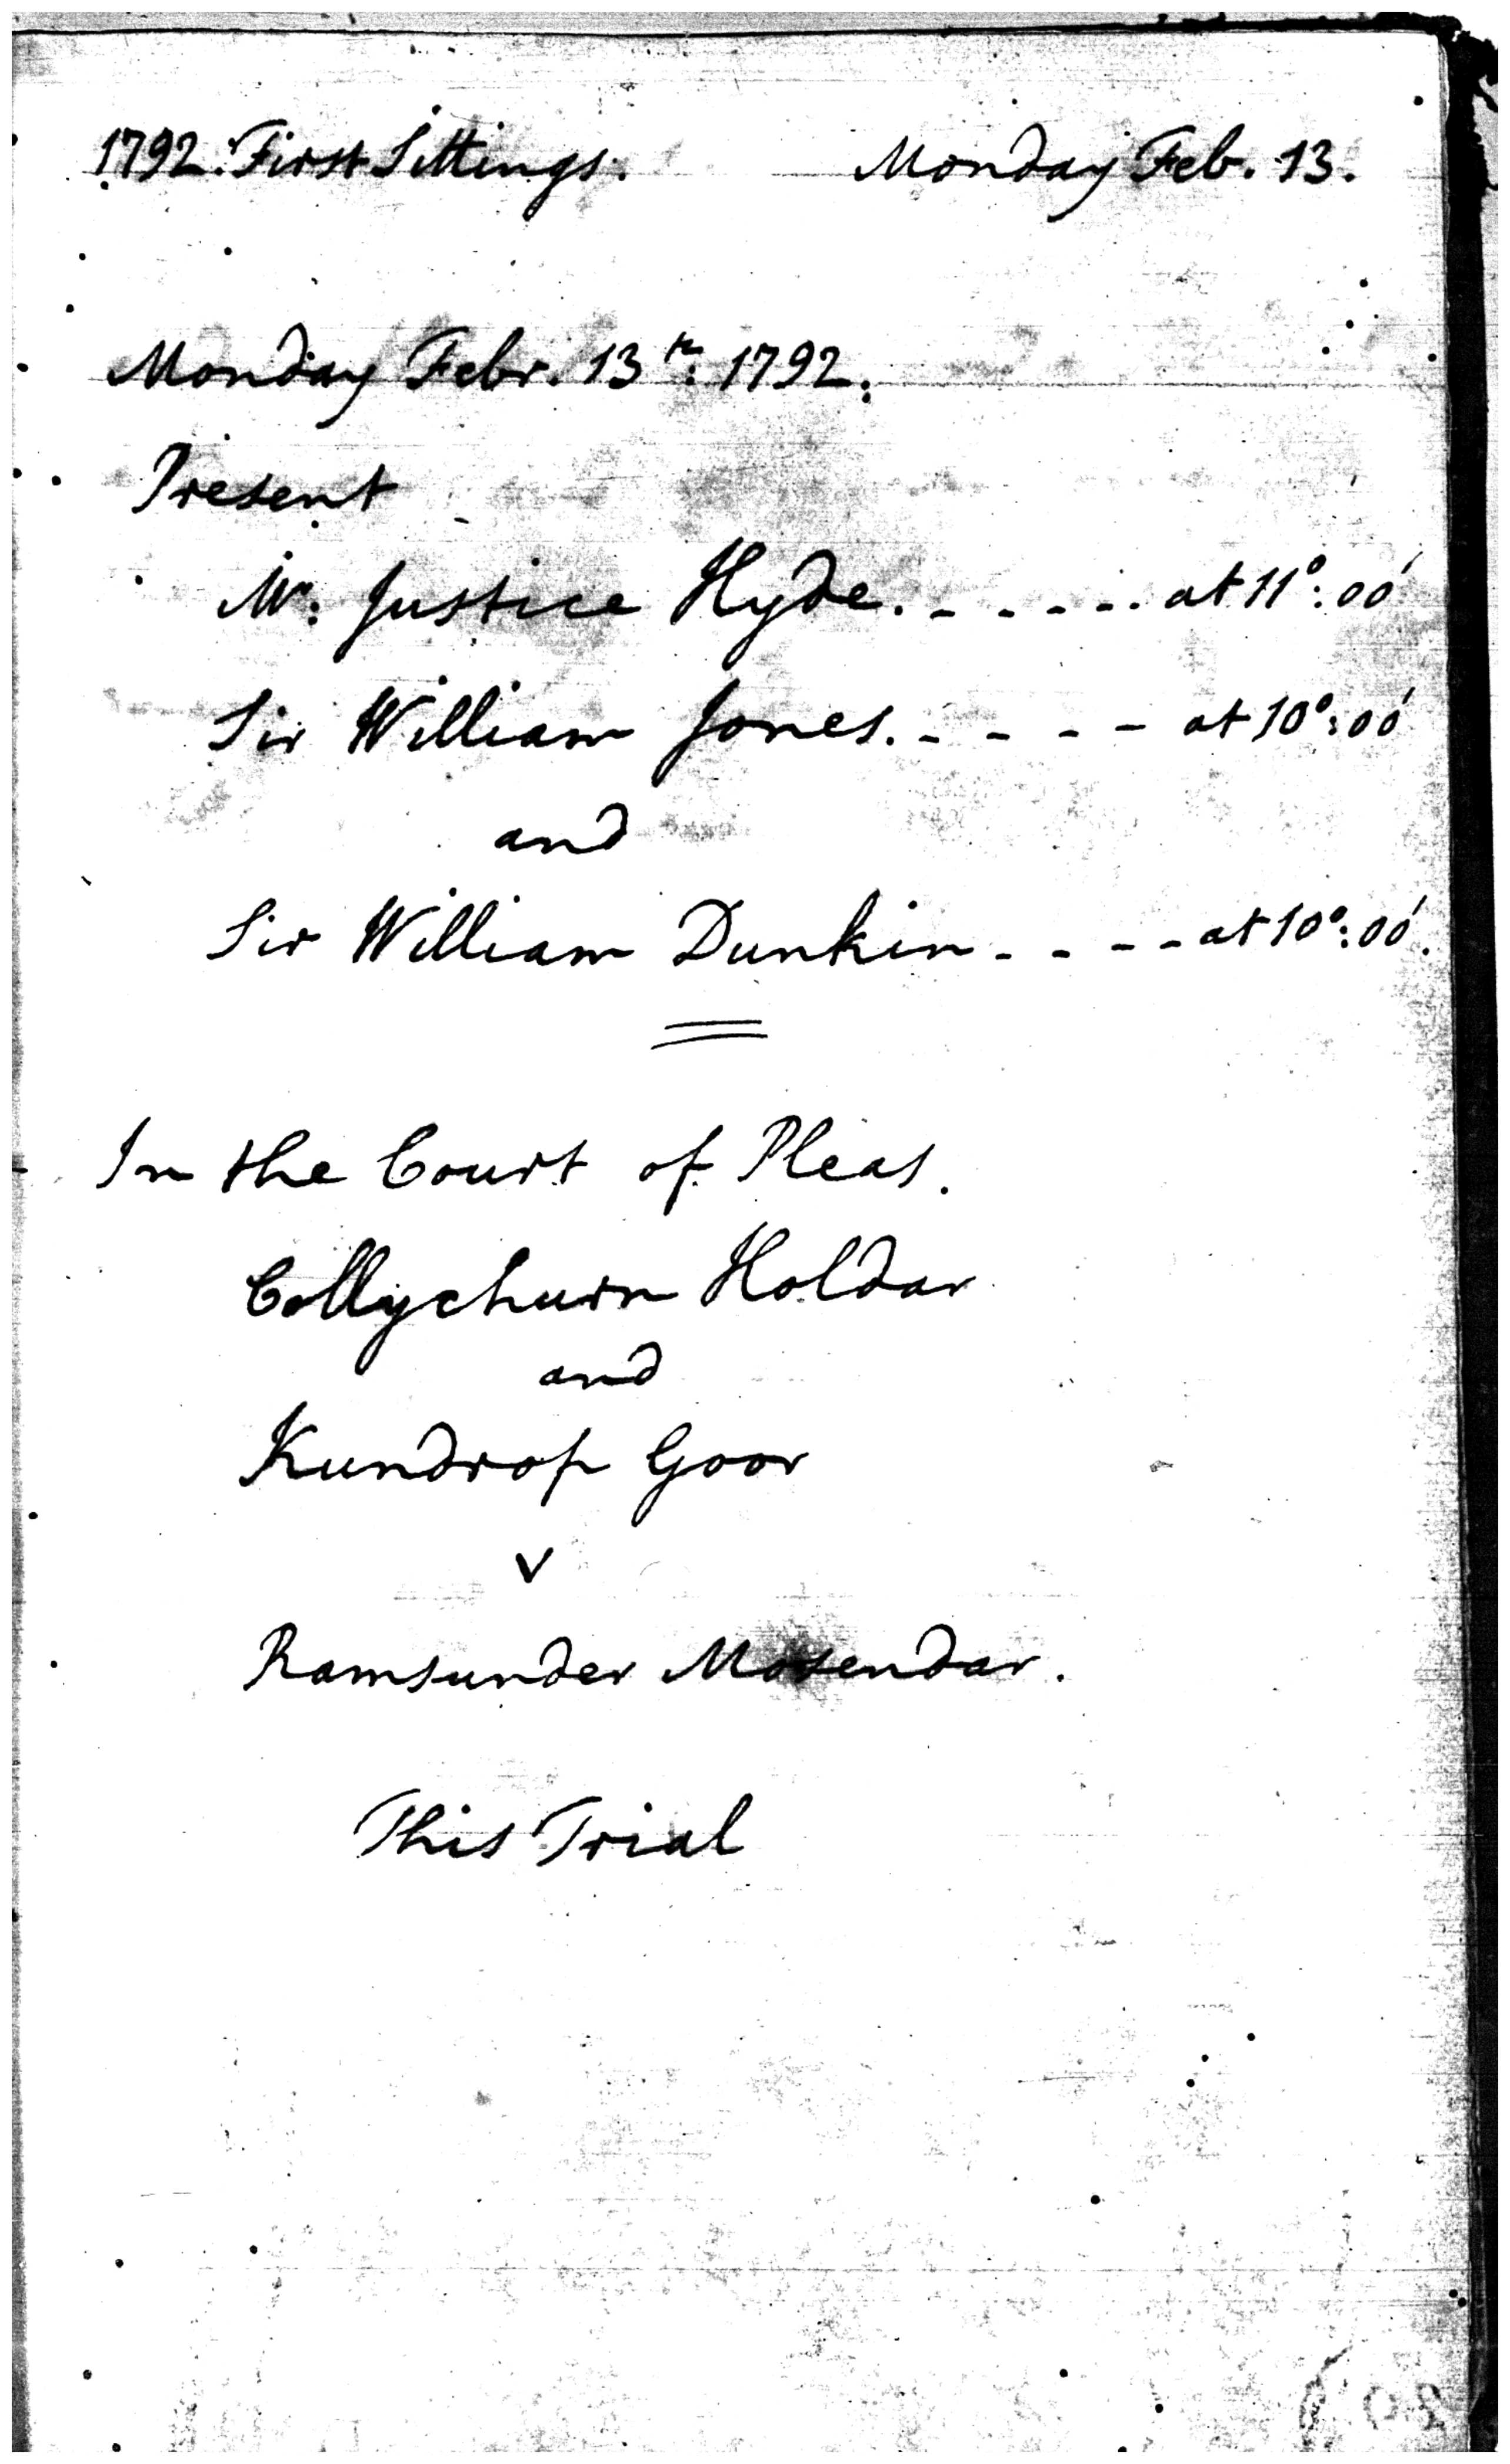 1792. First Sittings. Monday Feb. 13.
Monday Febr. 13th. 1792.
Present
Mr. Justice Hyde. - - - - - at 11°:00'
Sir William Jones. - - - - at 10°:00'
and
Sir William Dunkin - - - - at 10°:00'.
In the Court of Pleas.
Collychurn Holdar
and
Kundrop Goor
v
Ramsunder Mosendar.
This Trial